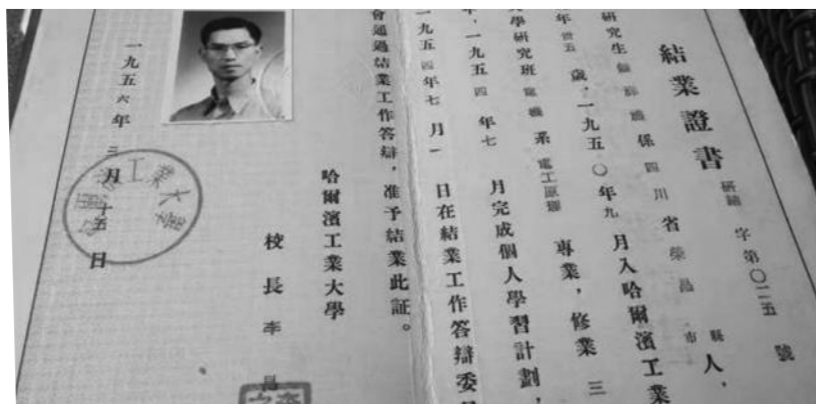 結業證書
研結 字第〇二五 號
研究生 係四川省榮昌 縣市人,
年卅五歲,一九五〇年九月入哈爾濱工業
大學研究班電機系電工原理專業,修業三
年,一九五四年七月完成個人學習計劃,
一九五四年七月一日在結業工作答辯委員
會通過結業工作答辯,准予結業此証。
哈爾濱工業大學
校長 李昌
一九五六年三月十五日
哈爾濱工業大學